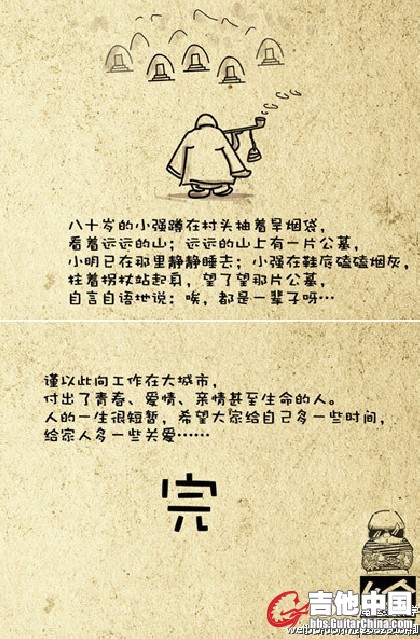 八十岁的小强蹲在村头抽着旱烟袋，
看着远远的山；远远的山上有一片公墓，
小明已在那里静静睡去；小强在鞋底磕磕烟灰，
拄着拐杖站起身，望了望那片公墓，
自言自语地说：唉，都是一辈子呀…
谨以此向工作在大城市，
付出了青春、爱情、亲情甚至生命的人。
人的一生很短暂，希望大家给自己多一些时间，
给家人多一些关爱……
完
吉他中国
bbs.GuitarChina.com